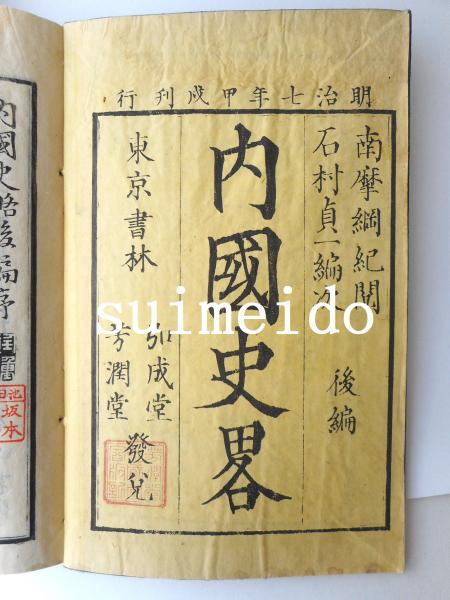 明治七年甲戌刊行
南摩綱紀閲
石村貞一編次
後編
内國史畧
東京書林
弘成堂
芳潤堂
發兌
suimeido
内國史略後編序
池田
坂本